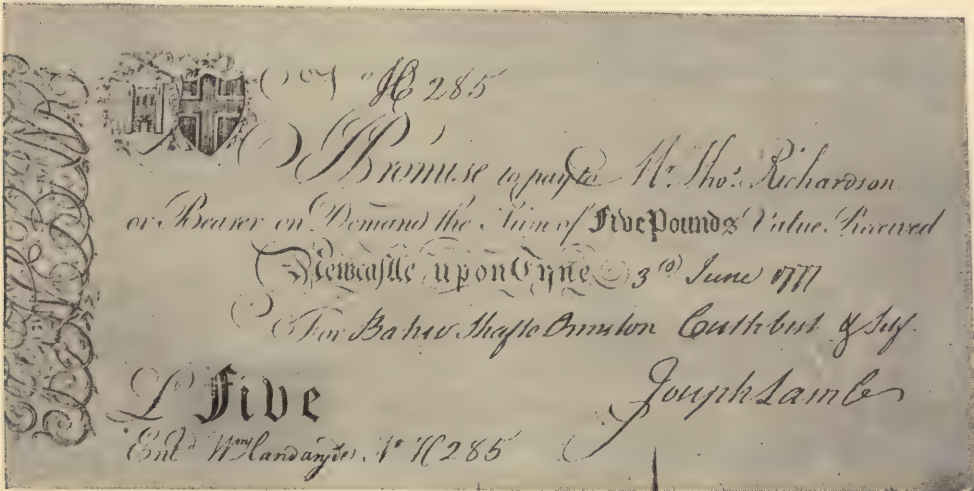 No H 285
I Promise to pay to Mr. Thos. Richardson
or Bearer on Demand the Sum of Five Pounds Value Received
Newcastle upon Tyne 3d June 1777
For Baker Shafto Ormston Cuthbert & Self.
Joseph Lamb
£ Five
Entd. Wm No H 285